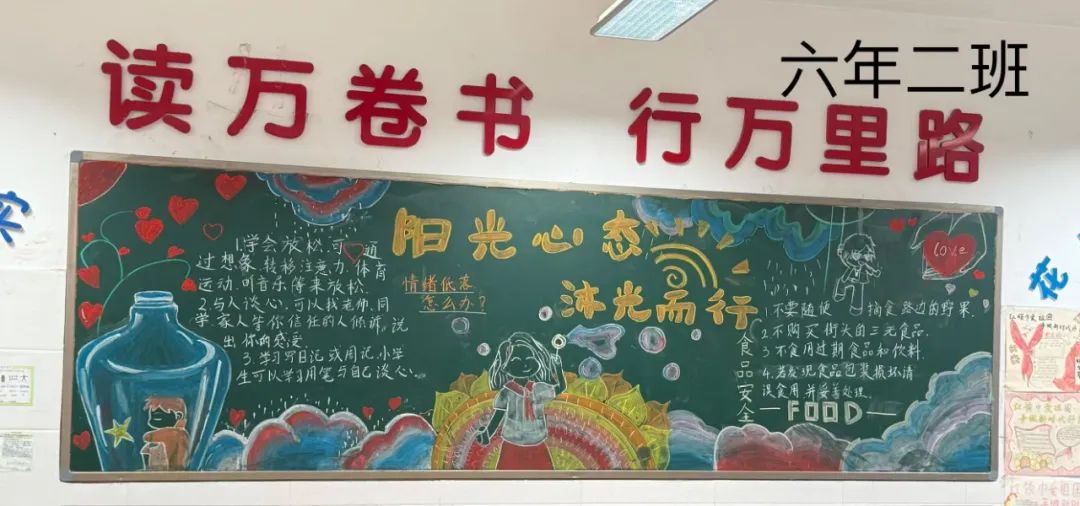 读万卷书 行万里路
六年二班
阳光心态
沐光而行
情绪低落
怎么办?
1.学会放松可通
过想象、转移注意力、体育
运动、听音乐等来放松.
2.与人谈心,可以找老师、同
学、家人等你信任的人倾诉,说
出你的感受
3.学习写日记或周记,小学
生可以学习用笔与自己谈心.
love
1.不要随便摘食路边的野果.
2.不购买街头的三无食品.
3.不食用过期食品和饮料.
4.若发现食品包装损坏请
误食用并妥善处理.
食品安全
FOOD
花